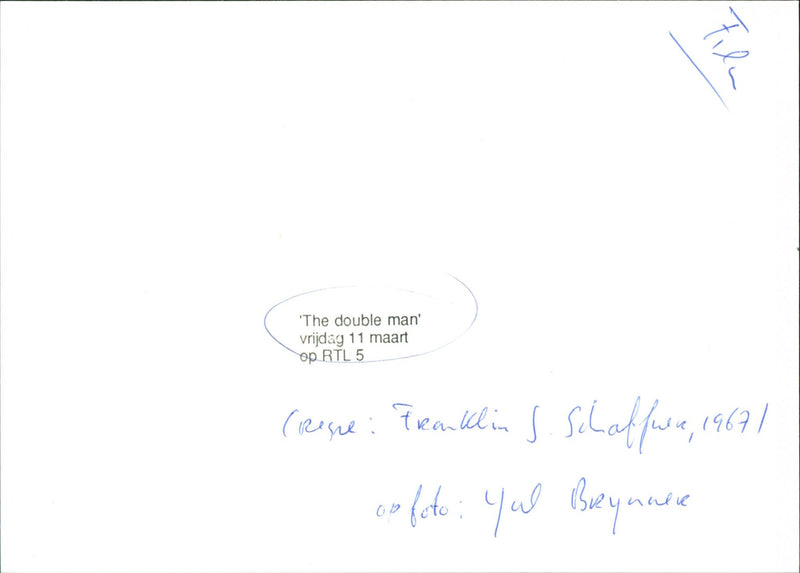 Film
'The double man'
vrijdag 11 maart
op RTL 5
(regie: Franklin J. Schaffner, 1967)
op foto: Yul Brynner